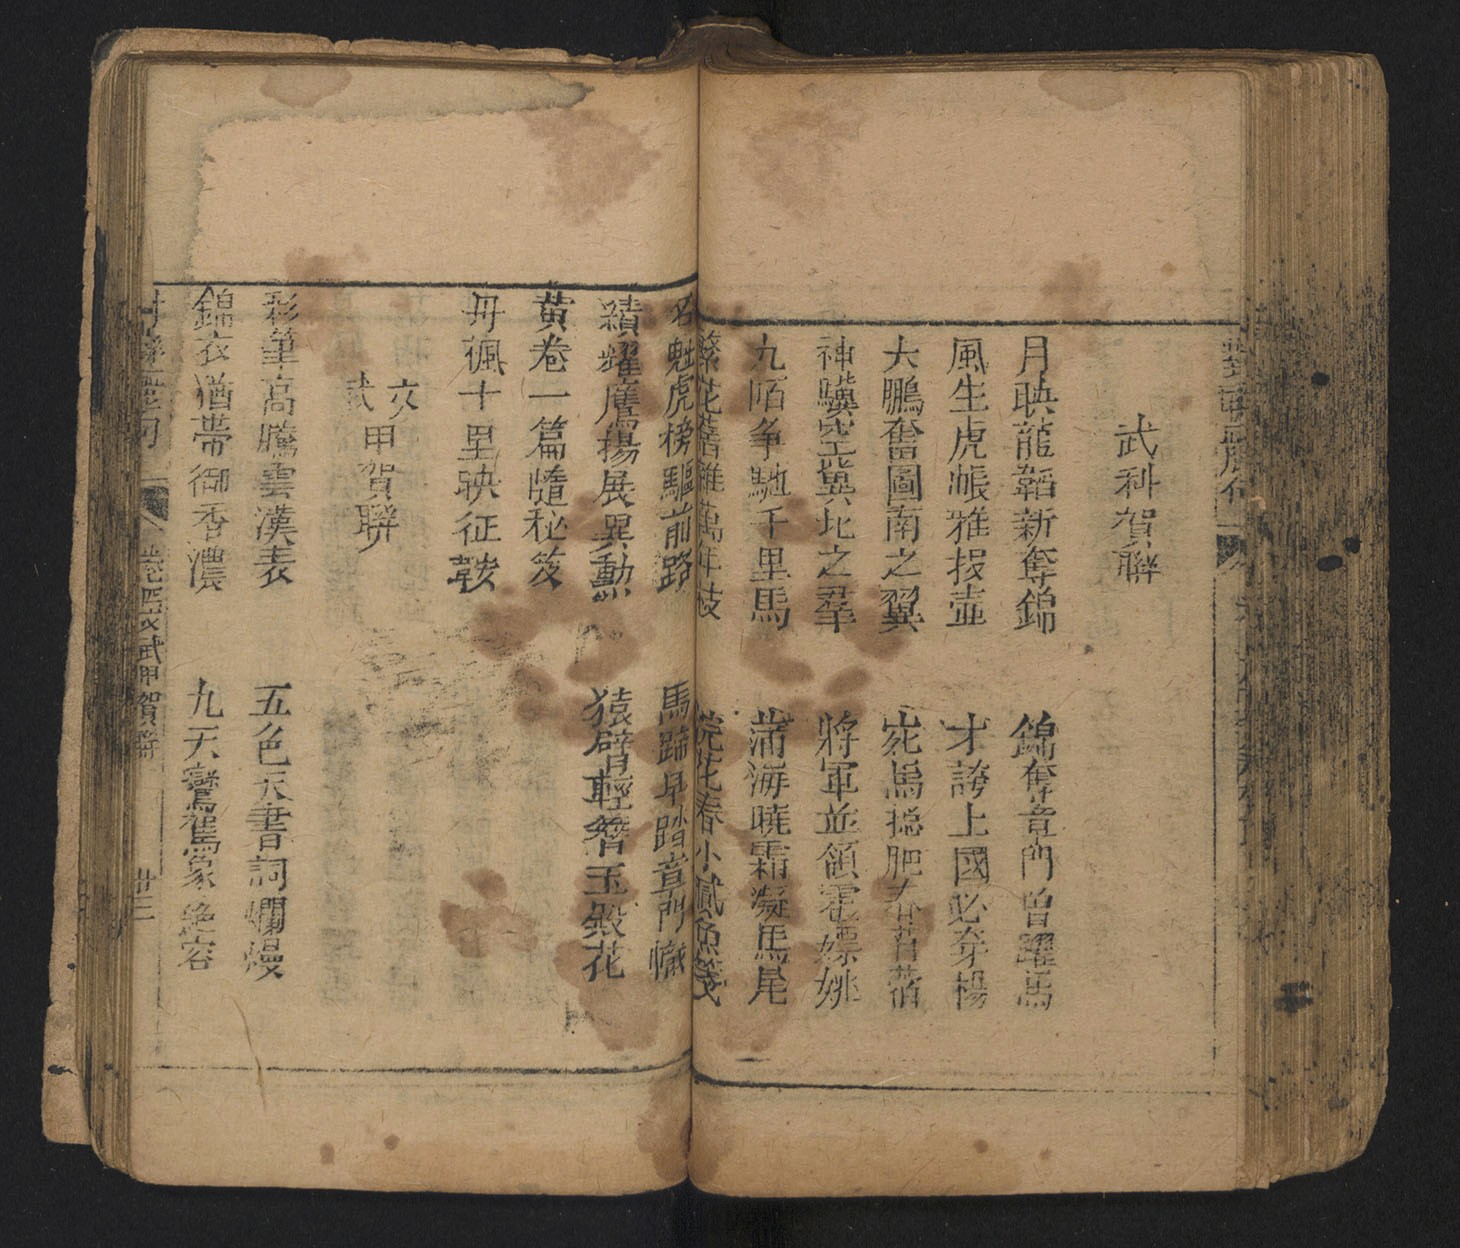 武科賀聯
月映龍韜新奪錦　錦奪章門曾躍馬
風生虎帳雅投壺　才誇上國必穿楊
大鵬奮圖南之翼　宛馬搃肥春苜蓿
神驥空冀北之羣　將軍並領霍嫖姚
九陌争馳千里馬　蒲海曉霜凝馬尾
花春小
名魁虎榜驅前路　馬蹄早踏章門
績耀鷹揚展異勳　猿臂輕簪玉殿花
黃卷一篇隨秘笈
丹楓十里映征鞍
文武甲賀聯
彩筆高騰雲漢表　五色天書詞爛熳
錦衣猶帶御香濃　九天鸞駕象絶容
文武甲賀聯
廿三